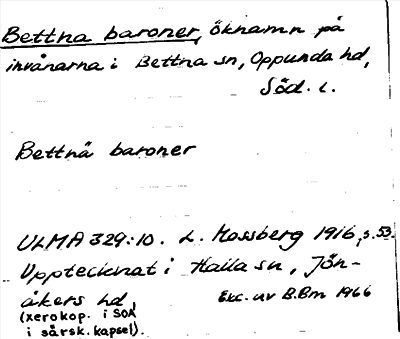 Bettna baroner, öknamn på
invånarna i Bettna sn, Oppunda hd,
Söd. l.
Bettnå baroner
ULMA 329:10. L. Mossberg 1916, s. 53.
Upptecknat i Halla sn, Jön-
åkers hd,
Exc. av B.Bm 1966
(xerokop. i SOA
i särsk. kapsel).